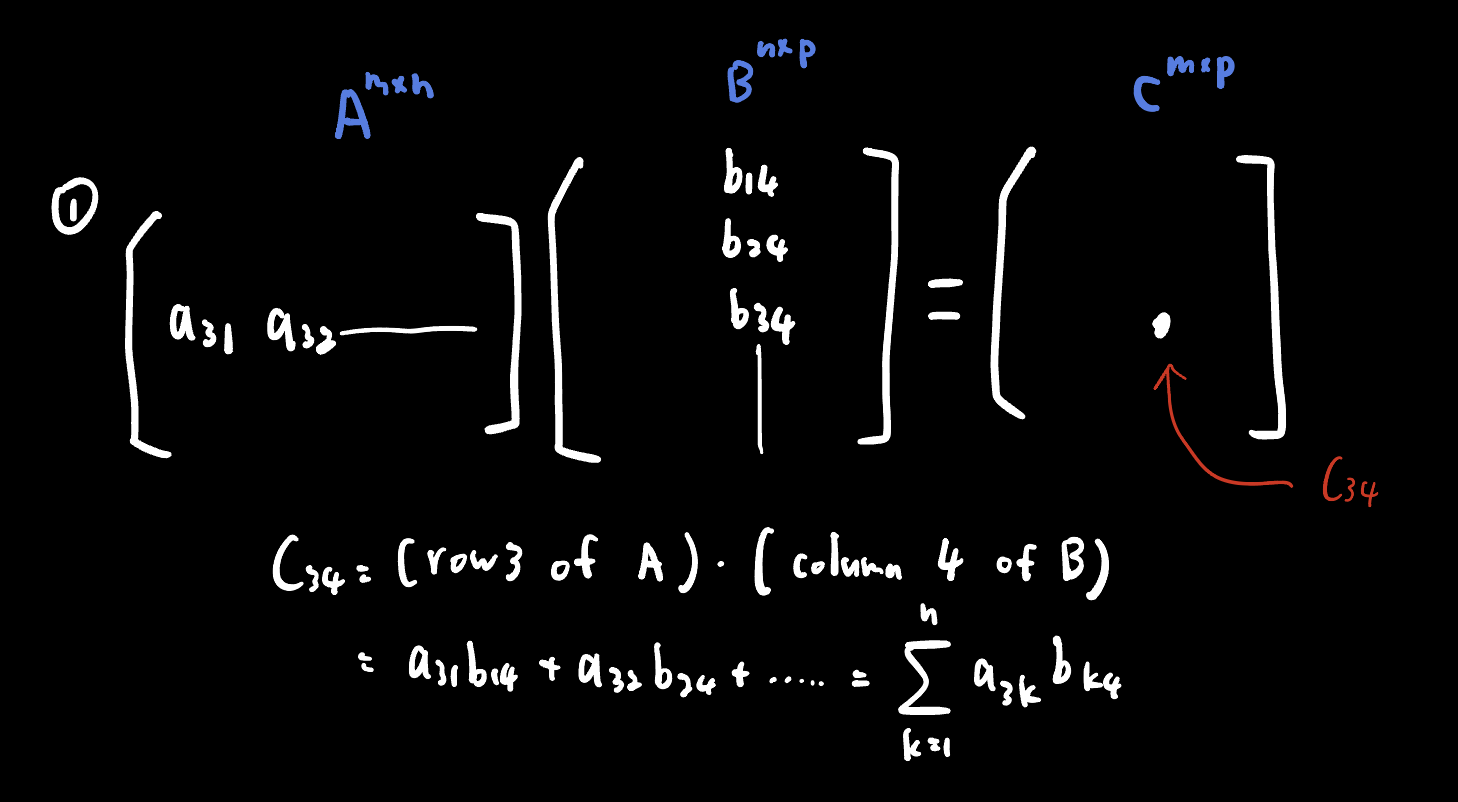 A^{m×n} B^{n×p} C^{m×p}
①
b14
b24
a31 a32 b34 =
C34
C34 = (row 3 of A) · (column 4 of B)
= a31b14 + a32b24 + ..... = \sum_{k=1}^{n} a3k bk4